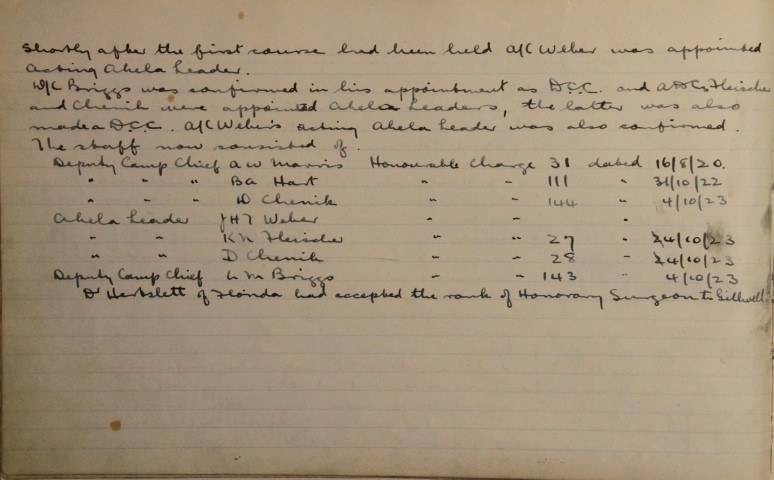 Shortly after the first course had been held A/C Weber was appointed
acting Akela Leader.
D/C Briggs was confirmed in his appointment as D.C.C. and A.D.Cs Fleischer
and Chenik were appointed Akela Leaders, the latter was also
made a D.C.C. A/C Weber's acting Akela Leader was also confirmed.
The staff now consisted of.
Deputy Camp Chief A W Marris Honourable Charge 31 dated 16/8/20.
" " " B A Hart " " 111 " 31/10/22
" " " D Chenik " " 144 " 4/10/23
Akela Leader J H T Weber " " "
" " K N Fleischer " " 27 " 24/10/23
" " D Chenik " " 28 " 24/10/23
Deputy Camp Chief L M Briggs " " 143 " 4/10/23
Dr of Florida had accepted the rank of Honorary Surgeon to Gillwell.